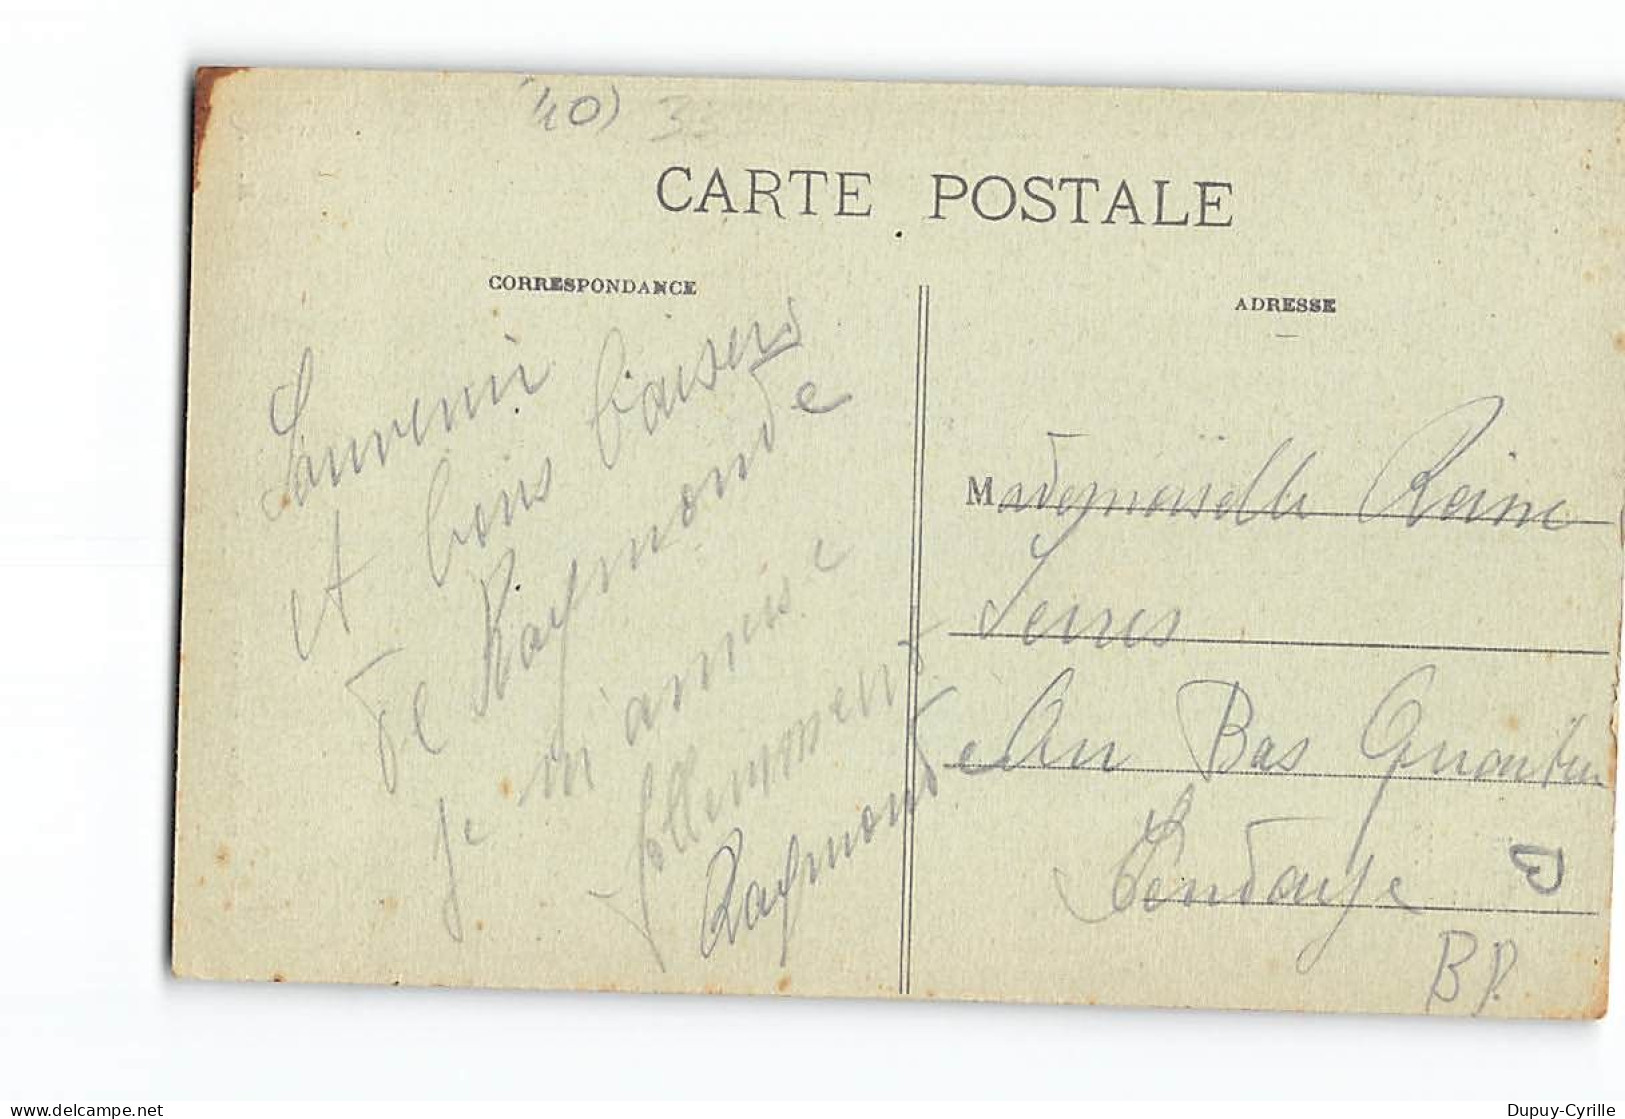 (40) 33
CARTE POSTALE
CORRESPONDANCE
ADRESSE
Souvenir
et bons baisers
de Raymonde
je m'amuse
follemment
Raymonde
Mademoiselle Reine
Serres
Au Bas Quartier
Hendaye
BP.
www.delcampe.net
Dupuy-Cyrille